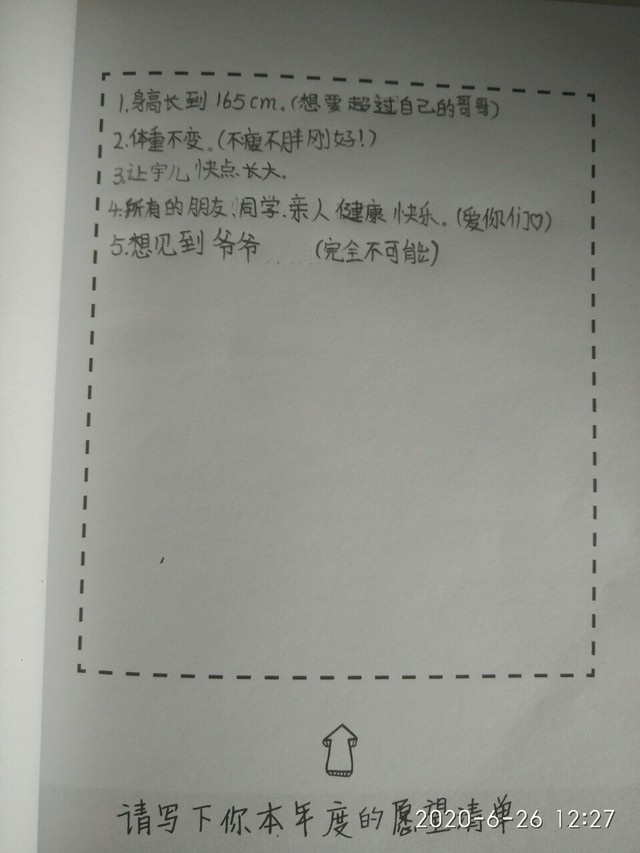 1.身高长到165cm。(想要超过自己的哥哥)
2.体重不变。(不瘦不胖刚好!)
3.让宇儿快点长大。
4.所有的朋友、同学、亲人健康快乐。(爱你们♡)
5.想见到爷爷 (完全不可能)
请写下你本年度的愿望清单
2020-6-26 12:27